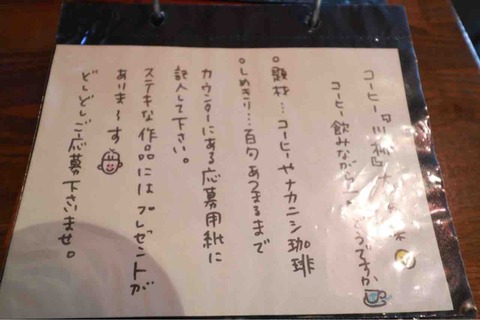 コーヒー『川柳』大募集
コーヒー飲みながら一句どうですか
○題材…コーヒーやナカニシ珈琲
○しめきり…百句あつまるまで
カウンターにある応募用紙に
記入して下さい。
ステキな作品にはプレゼントが
ありま〜す
どしどしご応募下さいませ。